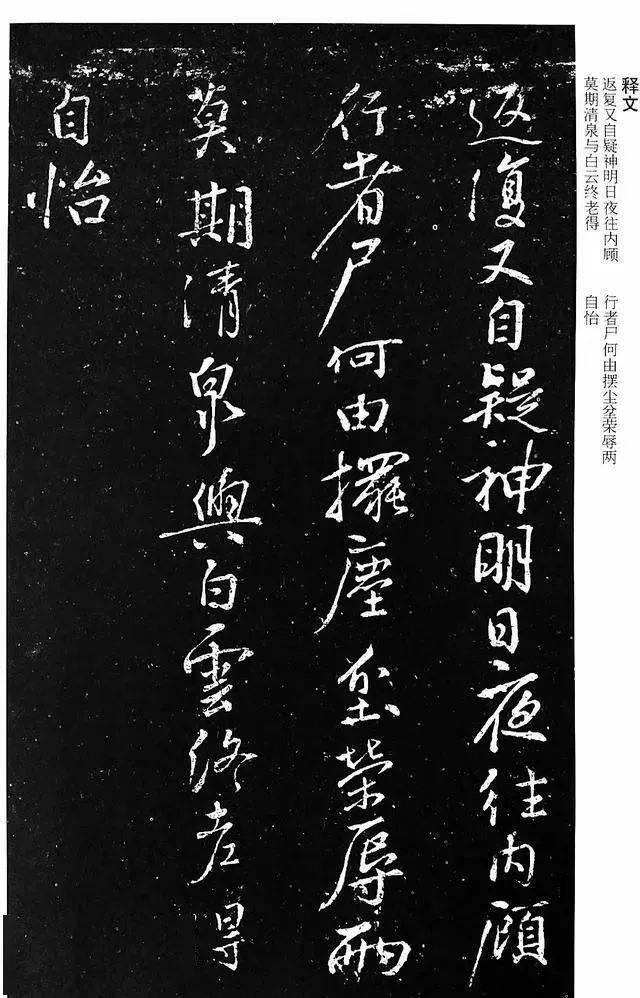 释文
返复又自疑神明日夜往内顾 行者尸何由摆尘坌荣辱两
莫期清泉与白云终老得 自怡
返復又自疑神明日夜往内顧
行者尸何由擺塵坌榮辱兩
莫期清泉與白雲終老得
自怡